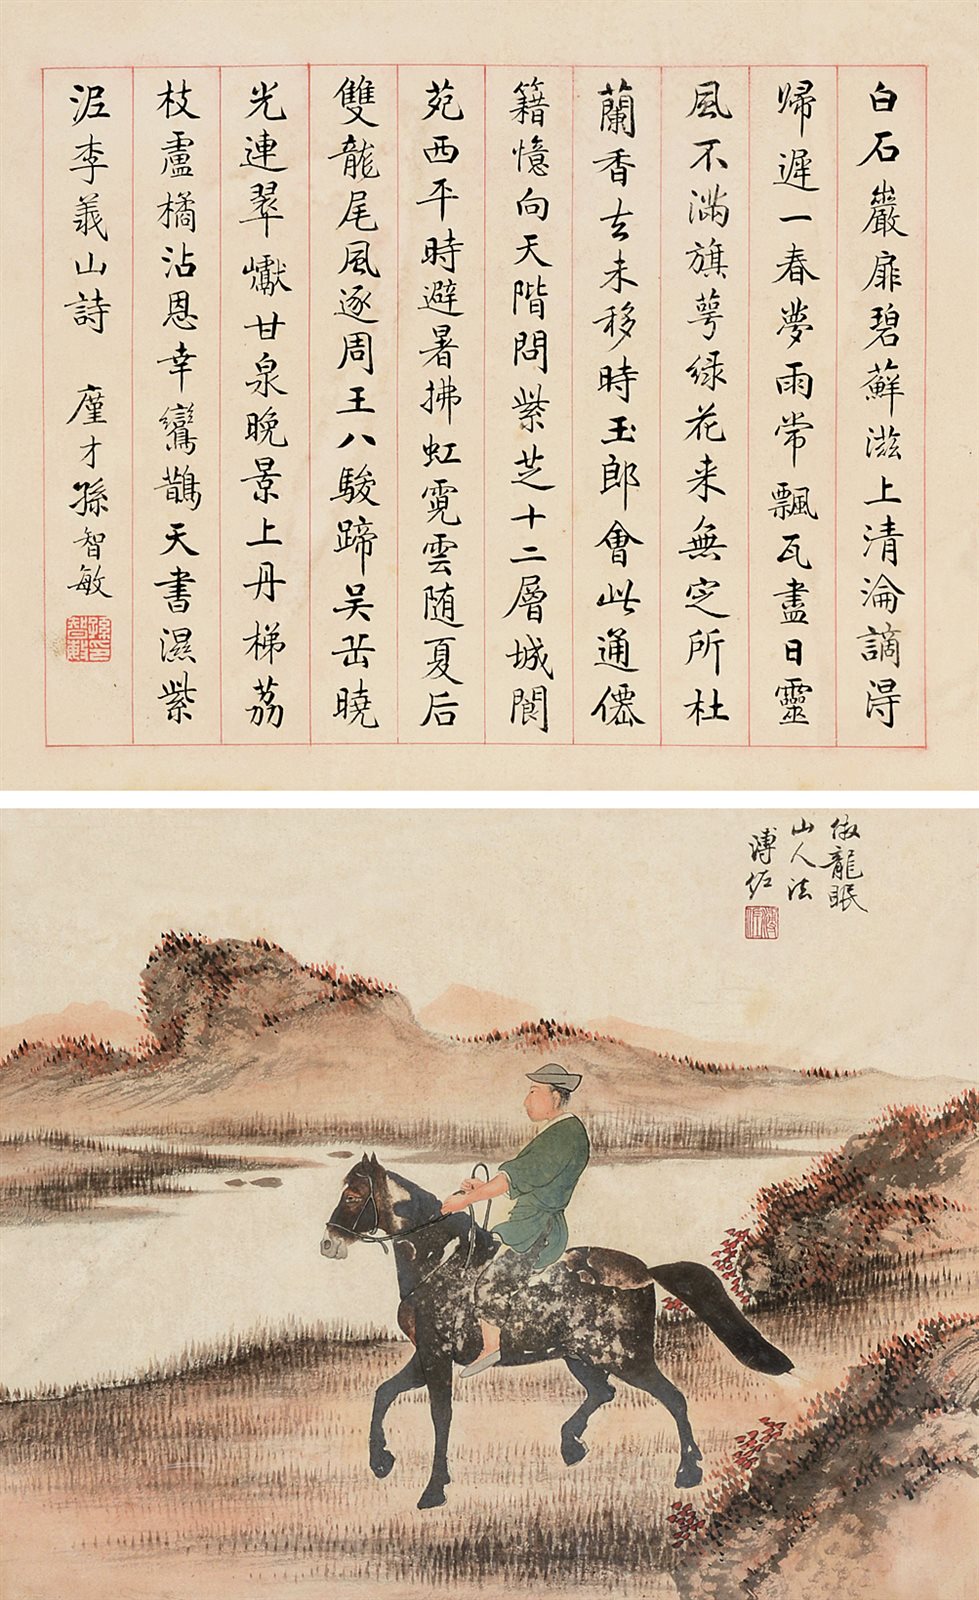 白石巖扉碧蘚滋上清淪謫淂
歸遲一春夢雨常飄瓦盡日靈
風不滿旗萼绿花来無定所杜
蘭香去未移時玉郎會此通僊
籍憶向天階問紫芝十二層城閬
苑西平時避暑拂虹霓雲随夏后
雙龍尾風逐周王八駿蹄吴岳曉
光連翠巘甘泉晚景上丹梯荔
枝盧橘沾恩幸鸞鵲天書濕紫
泥李義山詩 廑才孫智敏
倣龍眠
山人法
溥佐